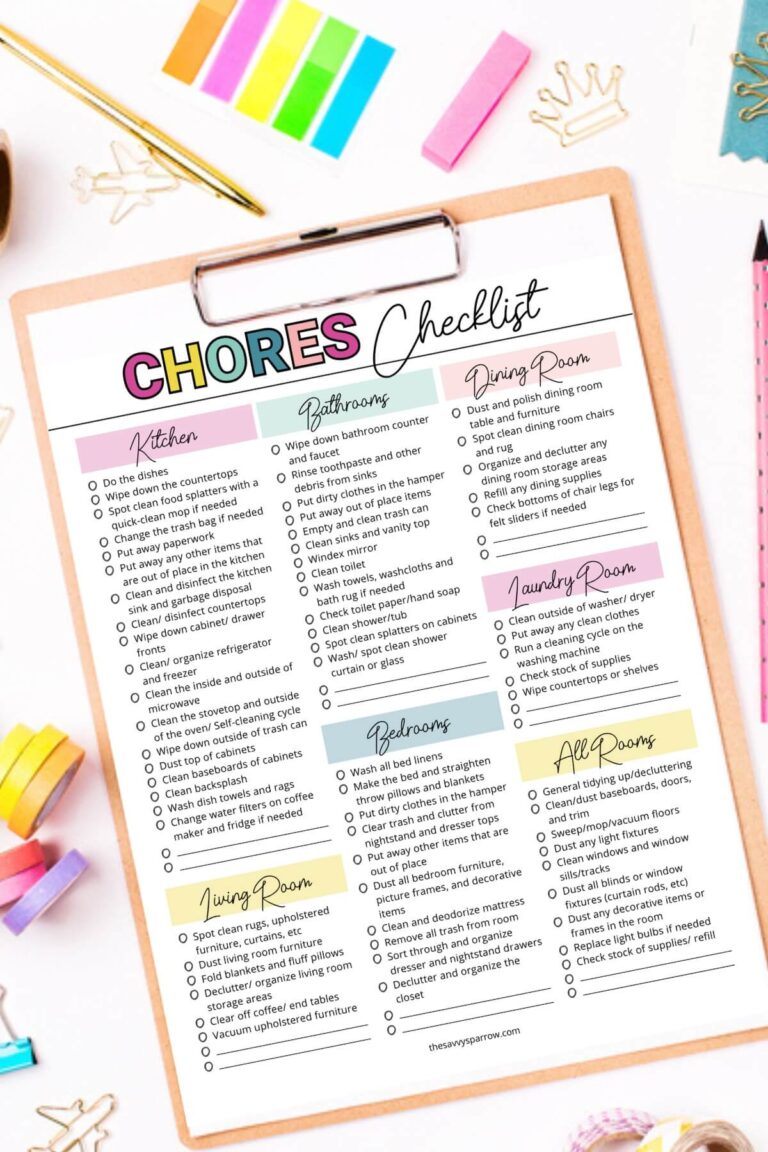 CHORES Checklist
Kitchen
Do the dishes
Wipe down the countertops
Spot clean food splatters with a
quick-clean mop if needed
Change the trash bag if needed
Put away paperwork
Put away any other items that
are out of place in the kitchen
Clean and disinfect the kitchen
sink and garbage disposal
Clean/ disinfect countertops
Wipe down cabinet/ drawer
fronts
Clean/ organize refrigerator
and freezer
Clean the inside and outside of
microwave
Clean the stovetop and outside
of the oven/ Self-cleaning cycle
Wipe down outside of trash can
Dust top of cabinets
Clean baseboards of cabinets
Clean backsplash
Wash dish towels and rags
Change water filters on coffee
maker and fridge if needed
Living Room
Spot clean rugs, upholstered
furniture, curtains, etc
Dust living room furniture
Fold blankets and fluff pillows
Declutter/ organize living room
storage areas
Clear off coffee/ end tables
Vacuum upholstered furniture
Bathrooms
Wipe down bathroom counter
and faucet
Rinse toothpaste and other
debris from sinks
Put dirty clothes in the hamper
Put away out of place items
Empty and clean trash can
Clean sinks and vanity top
Windex mirror
Clean toilet
Wash towels, washcloths and
bath rug if needed
Check toilet paper/hand soap
Clean shower/tub
Spot clean splatters on cabinets
Wash/ spot clean shower
curtain or glass
Bedrooms
Wash all bed linens
Make the bed and straighten
throw pillows and blankets
Put dirty clothes in the hamper
Clear trash and clutter from
nightstand and dresser tops
Put away other items that are
out of place
Dust all bedroom furniture,
picture frames, and decorative
items
Clean and deodorize mattress
Remove all trash from room
Sort through and organize
dresser and nightstand drawers
Declutter and organize the
closet
Dining Room
Dust and polish dining room
table and furniture
Spot clean dining room chairs
and rug
Organize and declutter any
dining room storage areas
Refill any dining supplies
Check bottoms of chair legs for
felt sliders if needed
Laundry Room
Clean outside of washer/ dryer
Put away any clean clothes
Run a cleaning cycle on the
washing machine
Check stock of supplies
Wipe countertops or shelves
All Rooms
General tidying up/decluttering
Clean/dust baseboards, doors,
and trim
Sweep/mop/vacuum floors
Dust any light fixtures
Clean windows and window
sills/tracks
Dust all blinds or window
fixtures (curtain rods, etc)
Dust any decorative items or
frames in the room
Replace light bulbs if needed
Check stock of supplies/ refill
thesavvysparrow.com